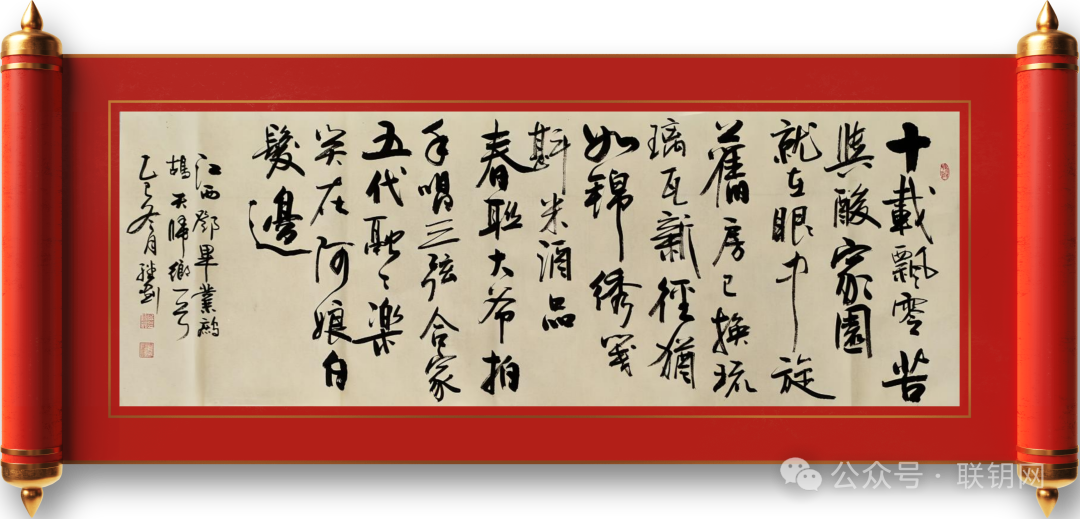 十載飄零苦
與酸家園
就在眼中旋
舊房已換琉
璃瓦新徑猶
如錦绣箋
斟米酒品
春联大爷拍
手唱三弦合家
五代融〻樂
笑在阿娘白
髮邊
江西鄧畢業鹧
鴣天歸鄉一首
乙巳冬月
公众号 · 联钥网